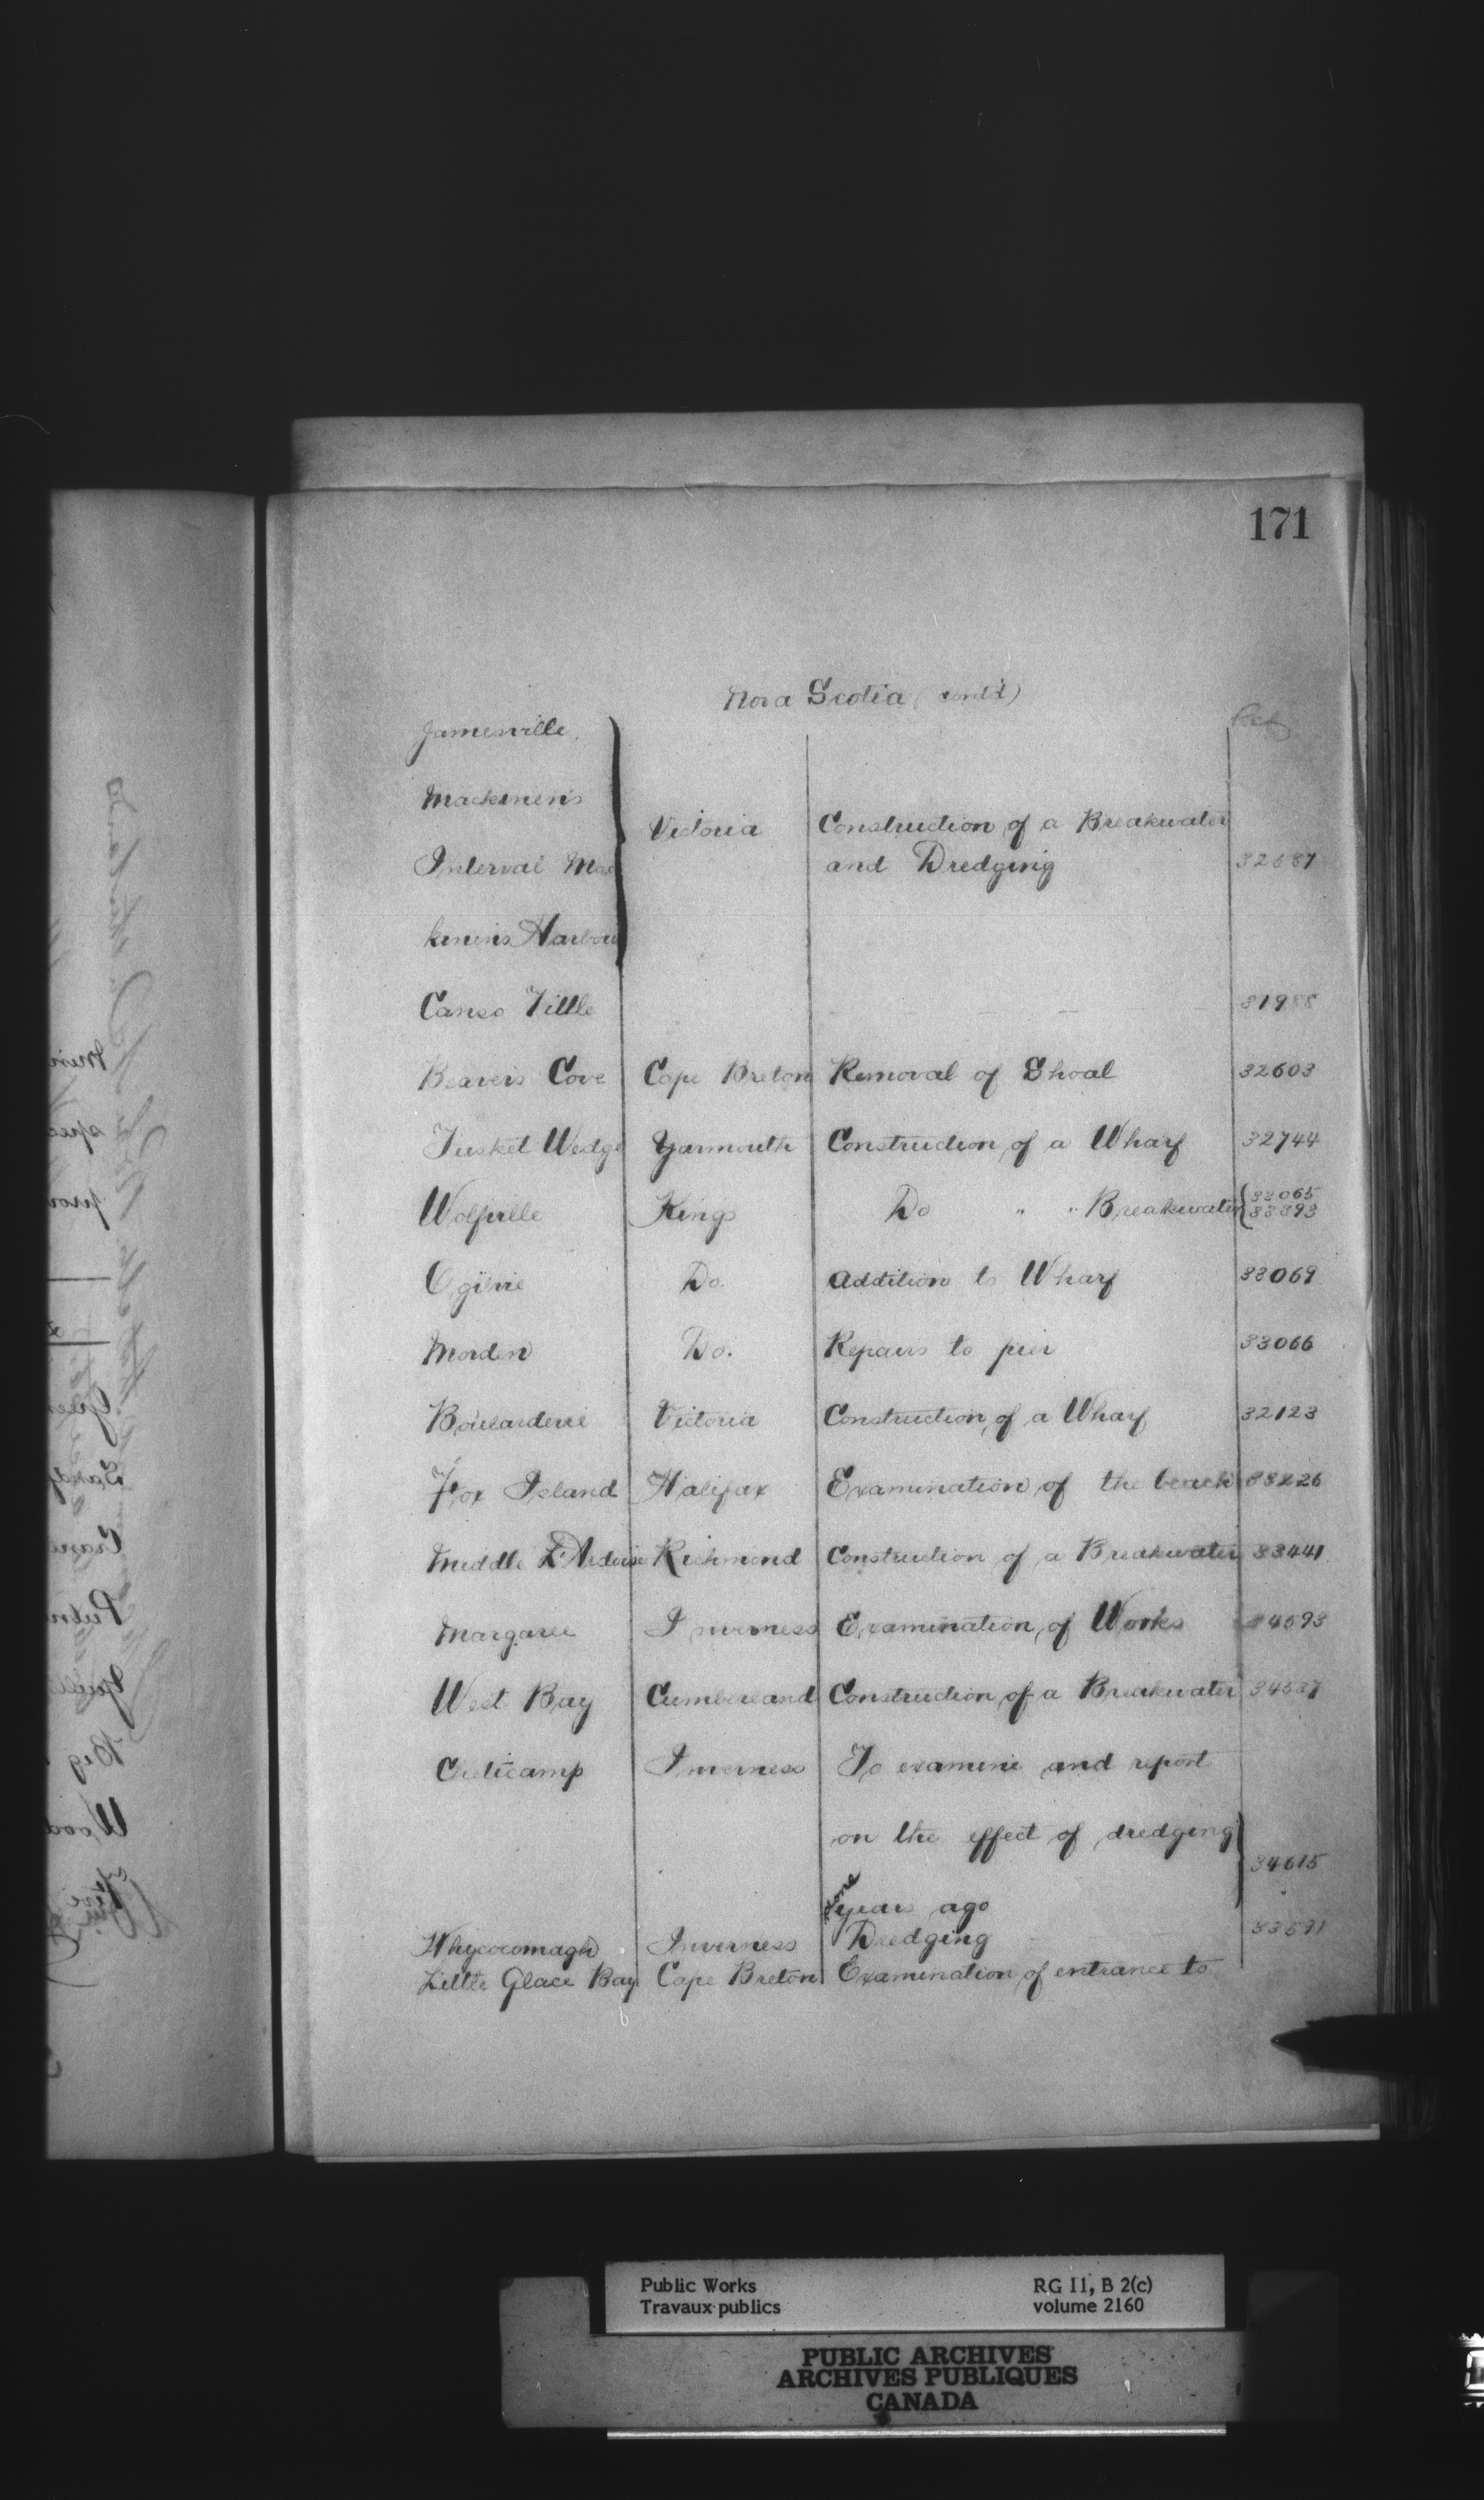 171
Nova Scotia (cont'd)
Ref
Jamesville,
Mackinen's
Interval Mac
kinen's Harbour
Victoria Construction of a Breakwater
and Dredging 32587
Canso Tittle 31988
Beaver's Cove Cape Breton Removal of Shoal 32603
Tusket Wedge Yarmouth Construction of a Wharf 32744
Wolfville Kings Do " " Breakwater { 33065
33393
Ogilvie Do. Addition to Wharf 33069
Morden Do. Repairs to pier 33066
Boularderie Victoria Construction of a Wharf 32123
Fox Island Halifax Examination of the beach 33226
Middle L'Ardoise Richmond Construction of a Breakwater 33441
Margaree Inverness Examination of Works 34593
West Bay Cumberland Construction of a Breakwater 34537
Cheticamp Inverness To examine and report
on the effect of dredging
34615
done years ago
Whycocomagh Inverness Dredging 33591
Little Glace Bay Cape Breton Examination of entrance to
Public Works RG 11, B 2(c)
Travaux publics volume 2160
PUBLIC ARCHIVES
ARCHIVES PUBLIQUES
CANADA